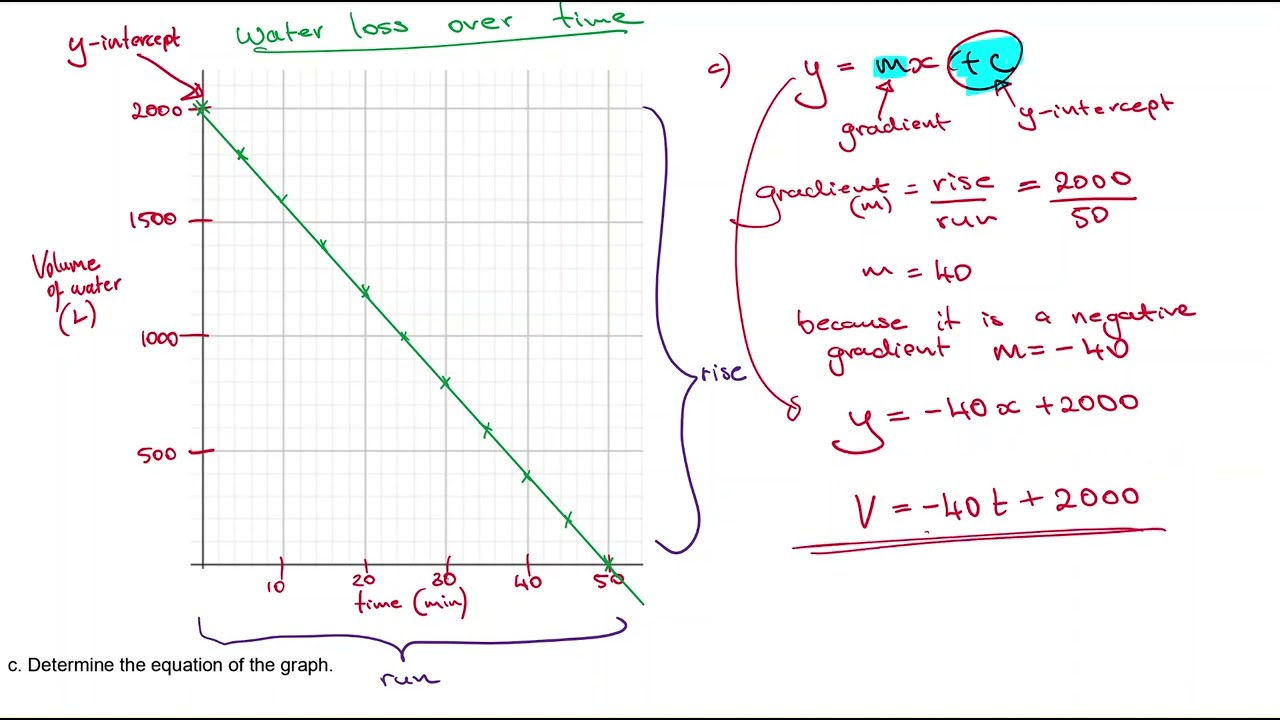 Water loss over time
y-intercept
2000
1500
1000
500
Volume
of water
(L)
10 20 30 40 50
time (min)
rise
run
c. Determine the equation of the graph.
c) y = mx + c
gradient
y-intercept
gradient (m) = rise/run = 2000/50
m = 40
because it is a negative
gradient m = -40
y = -40x + 2000
V = -40t + 2000